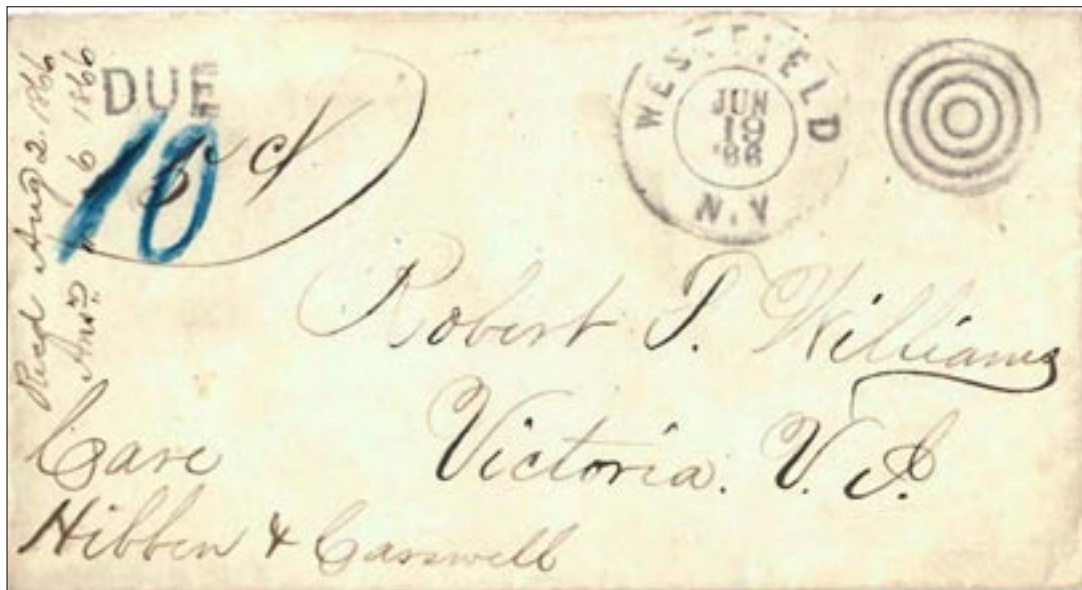 Recd Aug 2. 1866
Ansd " 6 1866
DUE
10
WESTFIELD
JUN
19
'66
N.Y
Robert T. Williams
Victoria. V. I.
Care
Hibben & Carswell